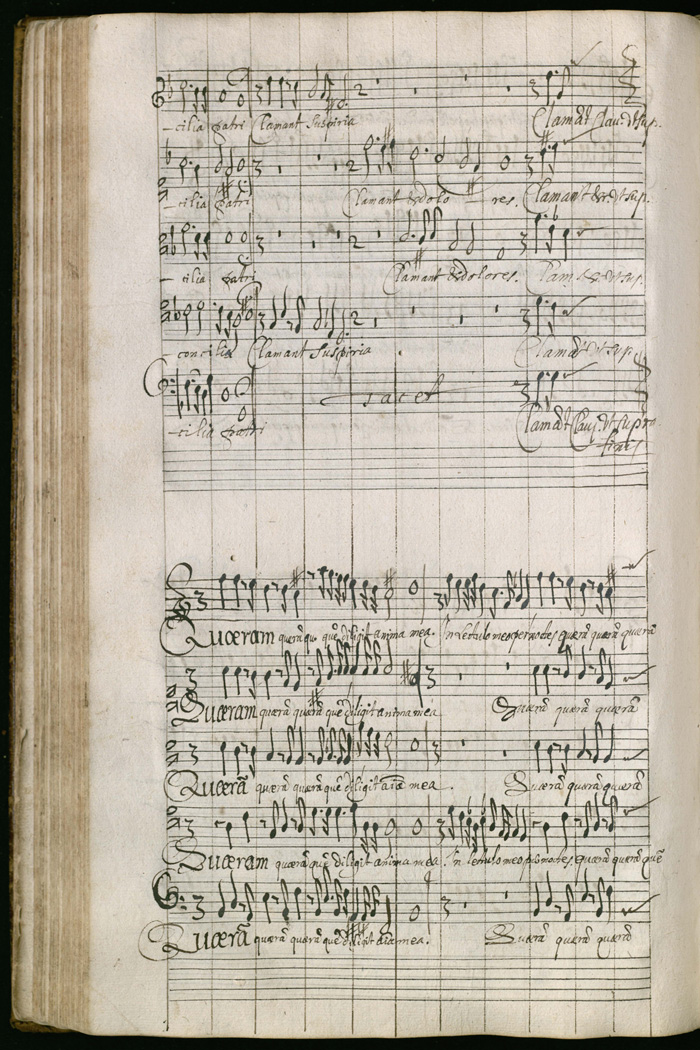 -cilia patri Clamant Suspiria Clamāt Clau. Vt sup.
-cilia patri Clamant &dolo - res. Clamant &c. Vt sup.
- cilia patri Clamant &dolores. Clam &c. Vt sup.
concilia Clamant Suspiria Clamāt Vt sup
Tacet
-cilia patri Clamāt Claus. Vt supra
finis
Quæram quærā qu quē diligit anima mea. In lectulo meo per noctes quærā quærā quærā
Quæram quærā quærā quē diligit anima mea Quærā quærā quærā
Quærā quærā quærā quē diligit aīa mea. Quærā quærā quærā
Quæram quærā quē diligit anima mea. In lectulo meo p noctes. quærā quærā quē
Quærā quærā quærā quē diligit aīa mea. Quærā quærā quærā